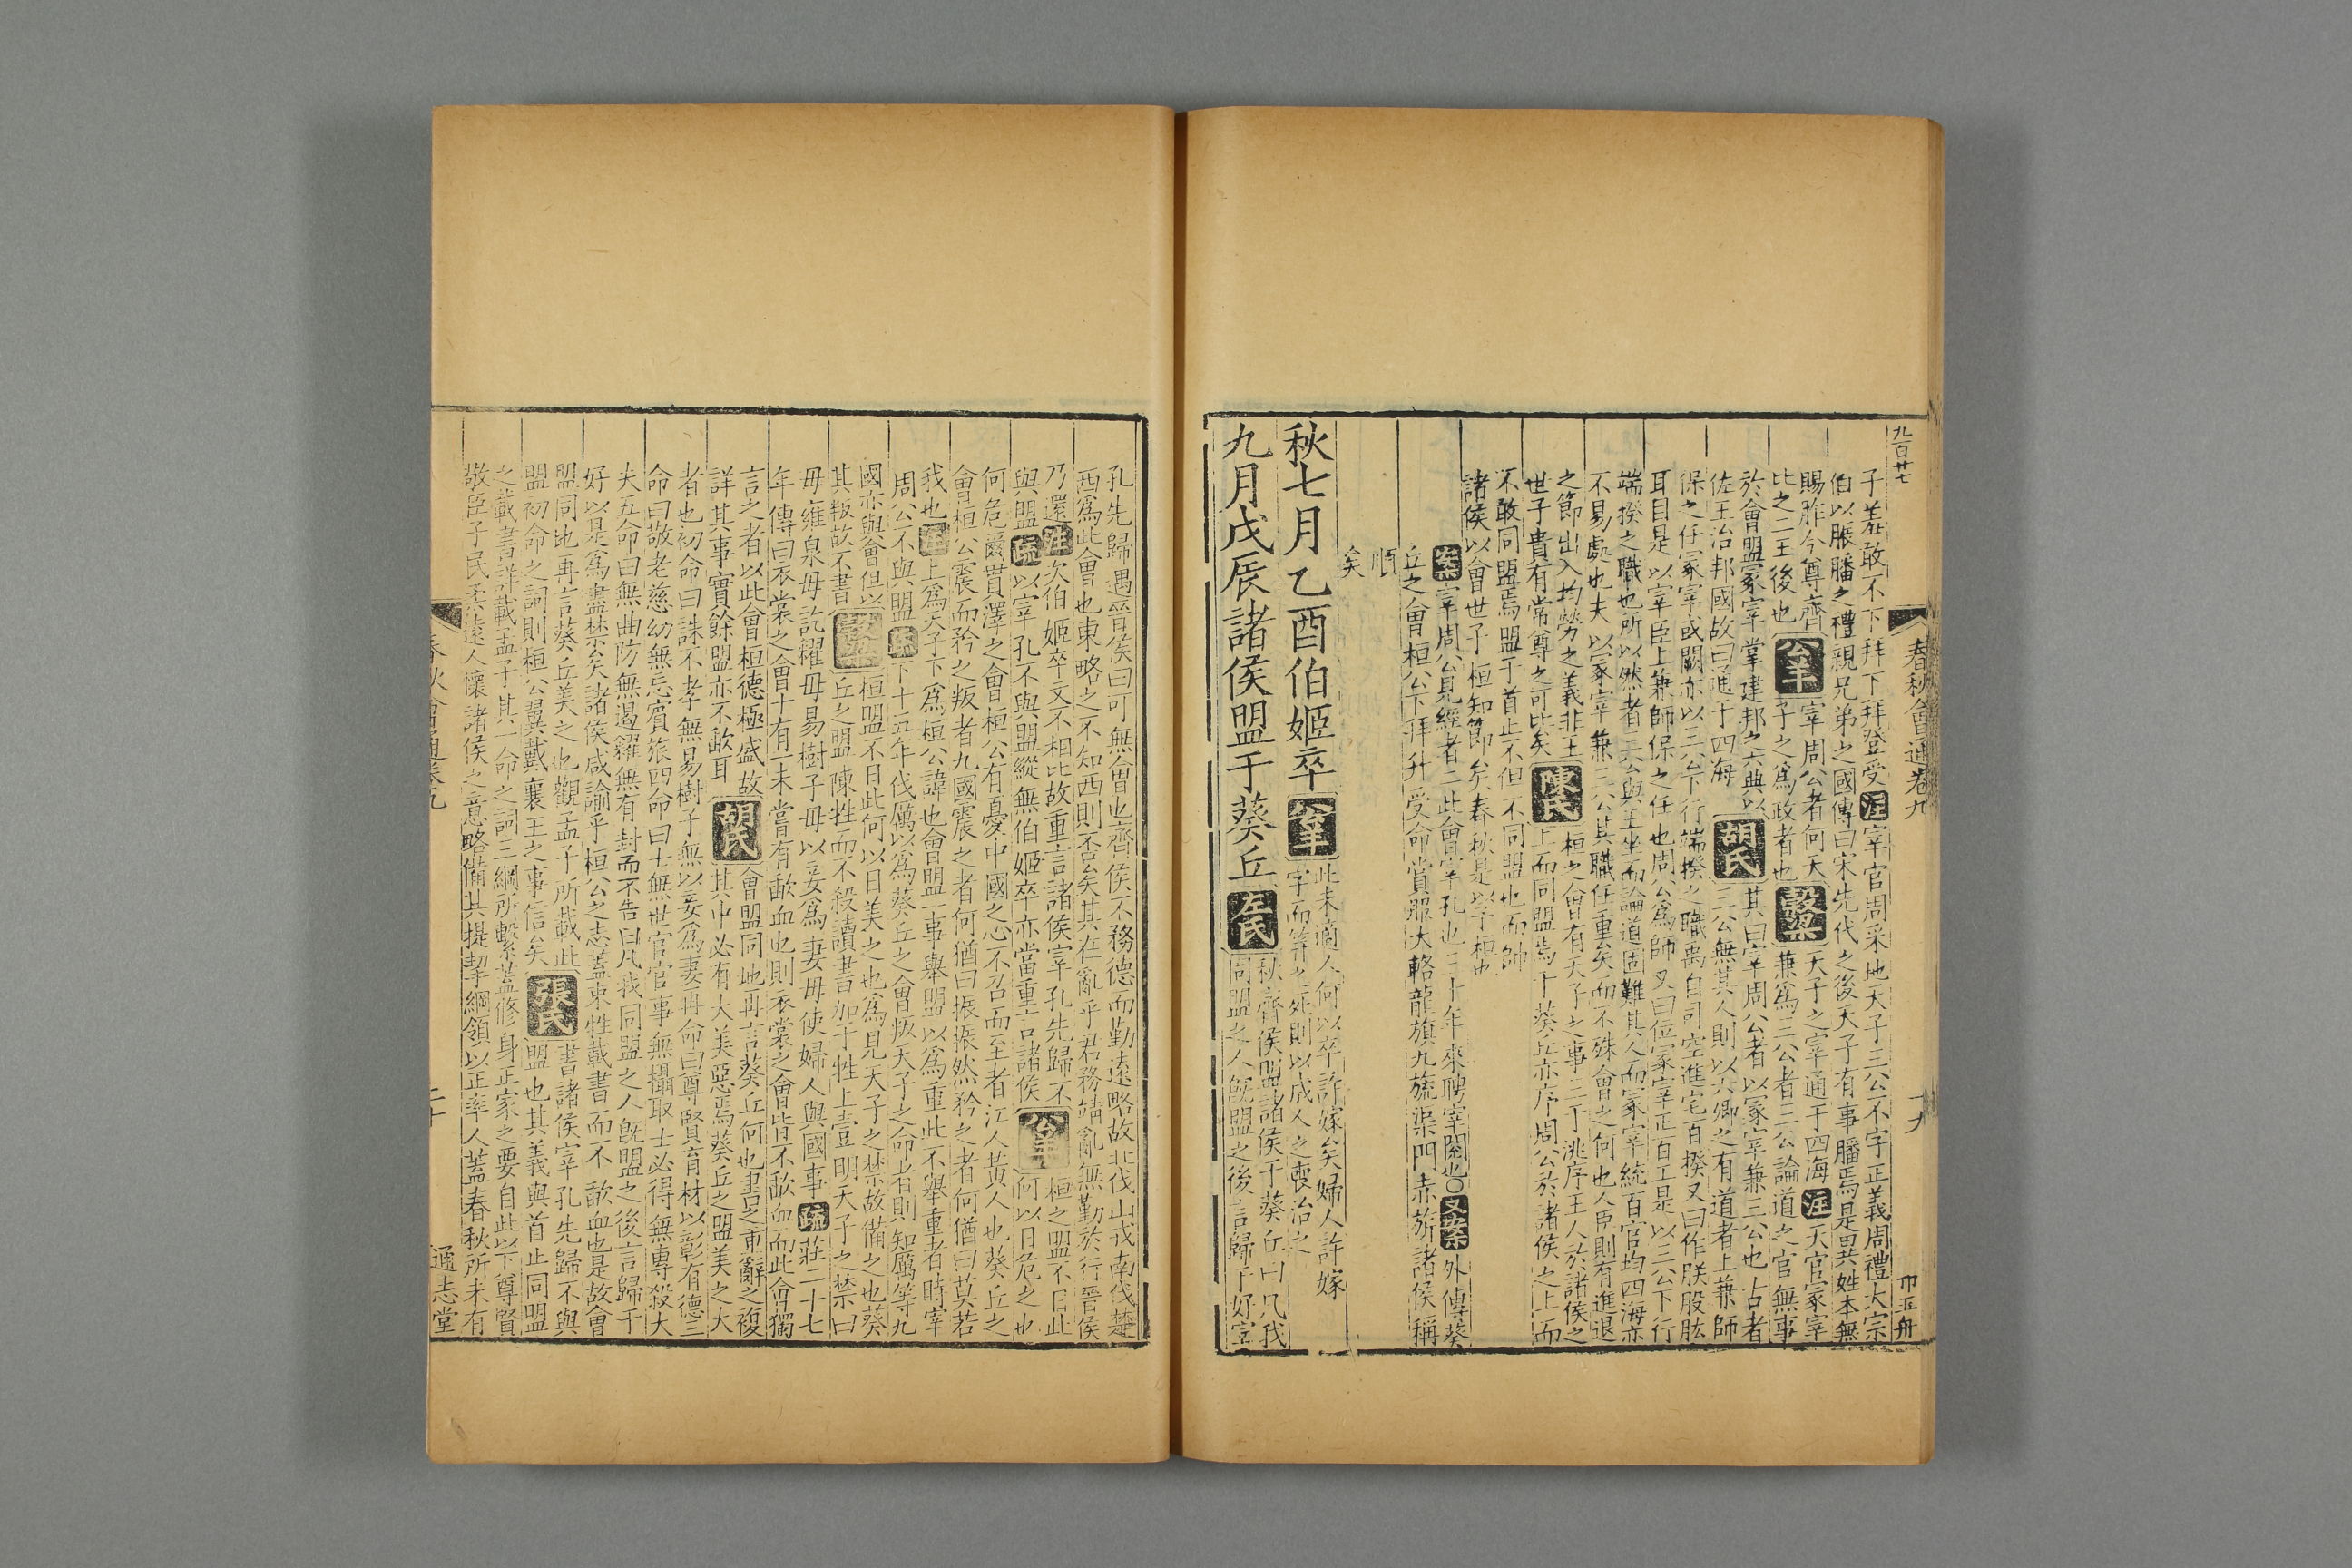 九百廿七
春秋會通卷九
十九
子羞敢不下拜下拜登受注宰官周采地天子三公不字正義周禮大宗
伯以脤膰之禮親兄弟之國傳曰宋先代之後天子有事膰焉是異姓本無
賜胙今尊齊
比之二王後也
公羊
宰周公者何天
子之爲政者也
穀梁
天子之宰通于四海注天官冢宰
兼爲三公者三公論道之官無事
於會盟冢宰掌建邦之六典以
佐王治邦國故曰通于四海
胡氏
其曰宰周公者以冢宰兼三公也古者
三公無其人則以六卿之有道者上兼師
保之任冢宰或闕亦以三公下行端揆之職禹自司空進宅百揆又曰作朕股肱
耳目是以宰臣上兼師保之任也周公爲師又曰位冢宰正百工是以三公下行
端揆之職也所以然者三公與王坐而論道固難其人而冢宰統百官均四海亦
不易處也夫以冢宰兼三公其職任重矣而不殊會之何也人臣則有進退
之節出入均勞之義非王
世子貴有常尊之可比矣
陳氏
桓之會有天子之事二于洮序王人於諸侯之
上而同盟焉于葵丘亦序周公於諸侯之上而
不敢同盟焉盟于首止不但不同盟也而帥
諸侯以會世子桓知節矣春秋是以予桓也
案宰周公見經者二此會宰孔也三十年來聘宰閱也○又案外傳葵
丘之會桓公下拜升受命賞服大輅龍旗九旒渠門赤旂諸侯稱
順
矣
秋七月乙酉伯姬卒公羊
此未適人何以卒許嫁矣婦人許嫁
字而笄之死則以成人之喪治之
九月戊辰諸侯盟于葵丘左氏
秋齊侯盟諸侯于葵丘曰凡我
同盟之人旣盟之後言歸于好宰
孔先歸遇晉侯曰可無會也齊侯不務德而勤遠略故北伐山戎南伐楚
西爲此會也東略之不知西則否矣其在亂乎君務靖亂無勤於行晉侯
乃還注次伯姬卒文不相比故重言諸侯宰孔先歸不
與盟疏以宰孔不與盟縱無伯姬卒亦當重言諸侯
公羊
桓之盟不日此
何以日危之也
何危爾貫澤之會桓公有憂中國之心不召而至者江人黃人也葵丘之
會桓公震而矜之叛者九國震之者何猶曰振振然矜之者何猶曰莫若
我也注上爲天子下爲桓公諱也會盟一事舉盟以爲重此不舉重者時宰
周公不與盟疏下十五年伐厲以爲葵丘之會叛天子之命者則知厲等九
國亦與會但以
其叛故不書
穀梁
桓盟不日此何以日美之也爲見天子之禁故備之也葵
丘之盟陳牲而不殺讀書加于牲上壹明天子之禁曰
毋雍泉毋訖糴毋易樹子毋以妾爲妻毋使婦人與國事疏莊二十七
年傳曰衣裳之會十有一未嘗有歃血也則衣裳之會皆不歃血而此會獨
言之者以此會桓德極盛故
詳其事實餘盟亦不歃耳
胡氏
會盟同地再言葵丘何也書之重辭之複
其中必有大美惡焉葵丘之盟美之大
者也初命曰誅不孝無易樹子無以妾爲妻再命曰尊賢育材以彰有德三
命曰敬老慈幼無忘賓旅四命曰士無世官官事無攝取士必得無專殺大
夫五命曰無曲防無遏糴無有封而不告曰凡我同盟之人旣盟之後言歸于
好以是爲盡禁矣諸侯咸諭乎桓公之志蓋束牲載書而不歃血也是故會
盟同地再言葵丘美之也觀孟子所載此
盟初命之詞則桓公翼戴襄王之事信矣
張氏
書諸侯宰孔先歸不與
盟也其義與首止同盟
之載書詳載孟子其一命之詞三綱所繫蓋修身正家之要自此以下尊賢
敬臣子民柔遠人懷諸侯之意略備其提挈綱領以正率人蓋春秋所未有
春秋會通卷九
二十
通志堂